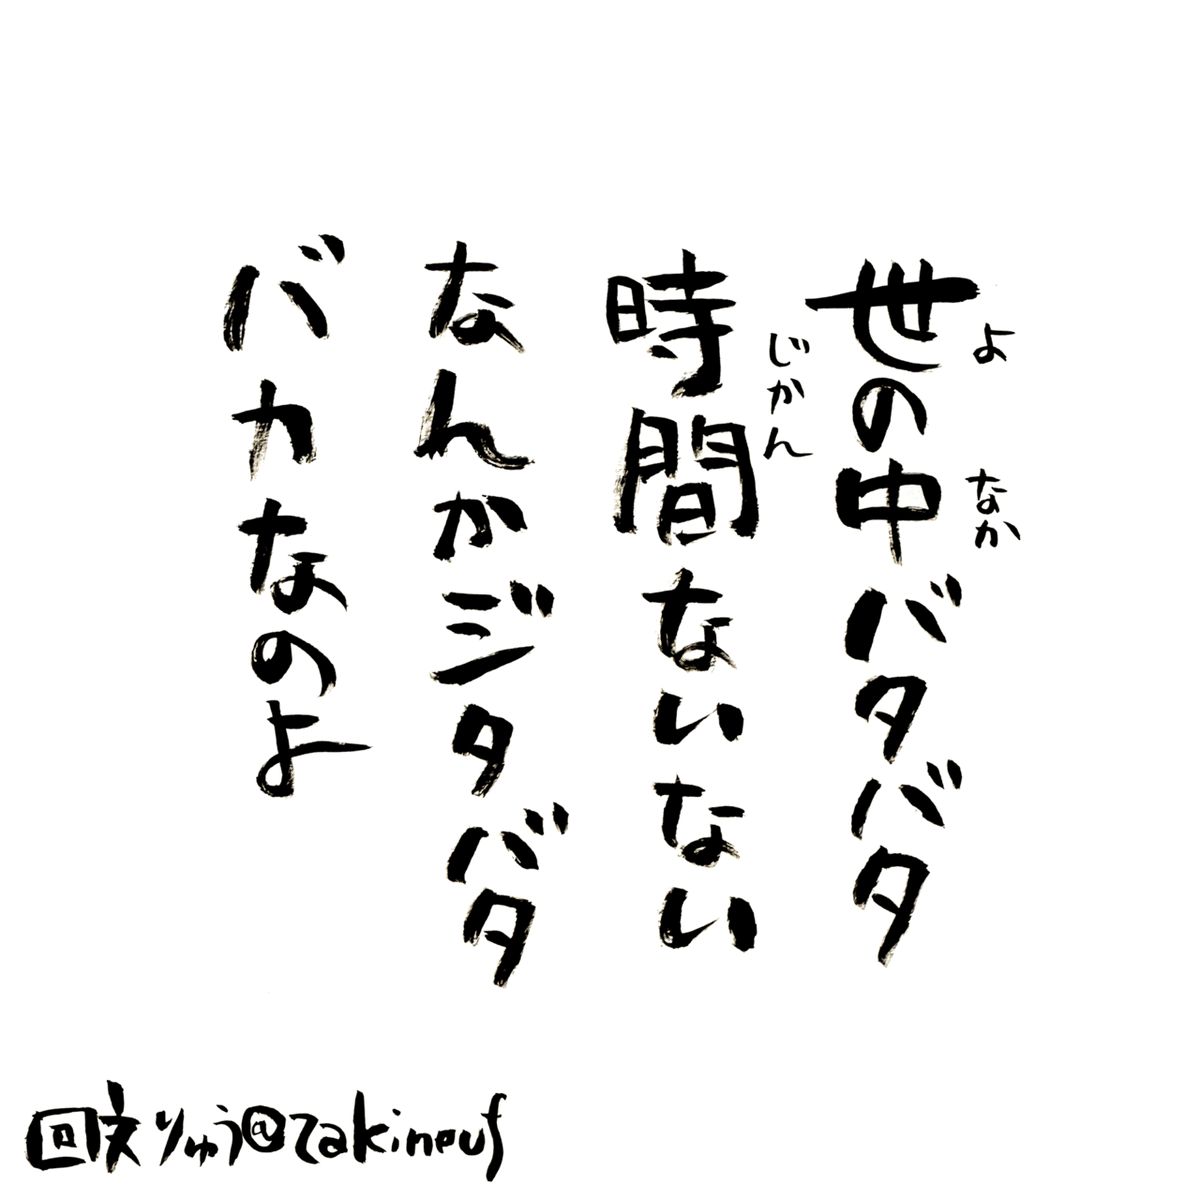 世の中バタバタ
よ
なか
時間ないない
じかん
なんかジタバタ
バカなのよ
回文りゅう@takineuf